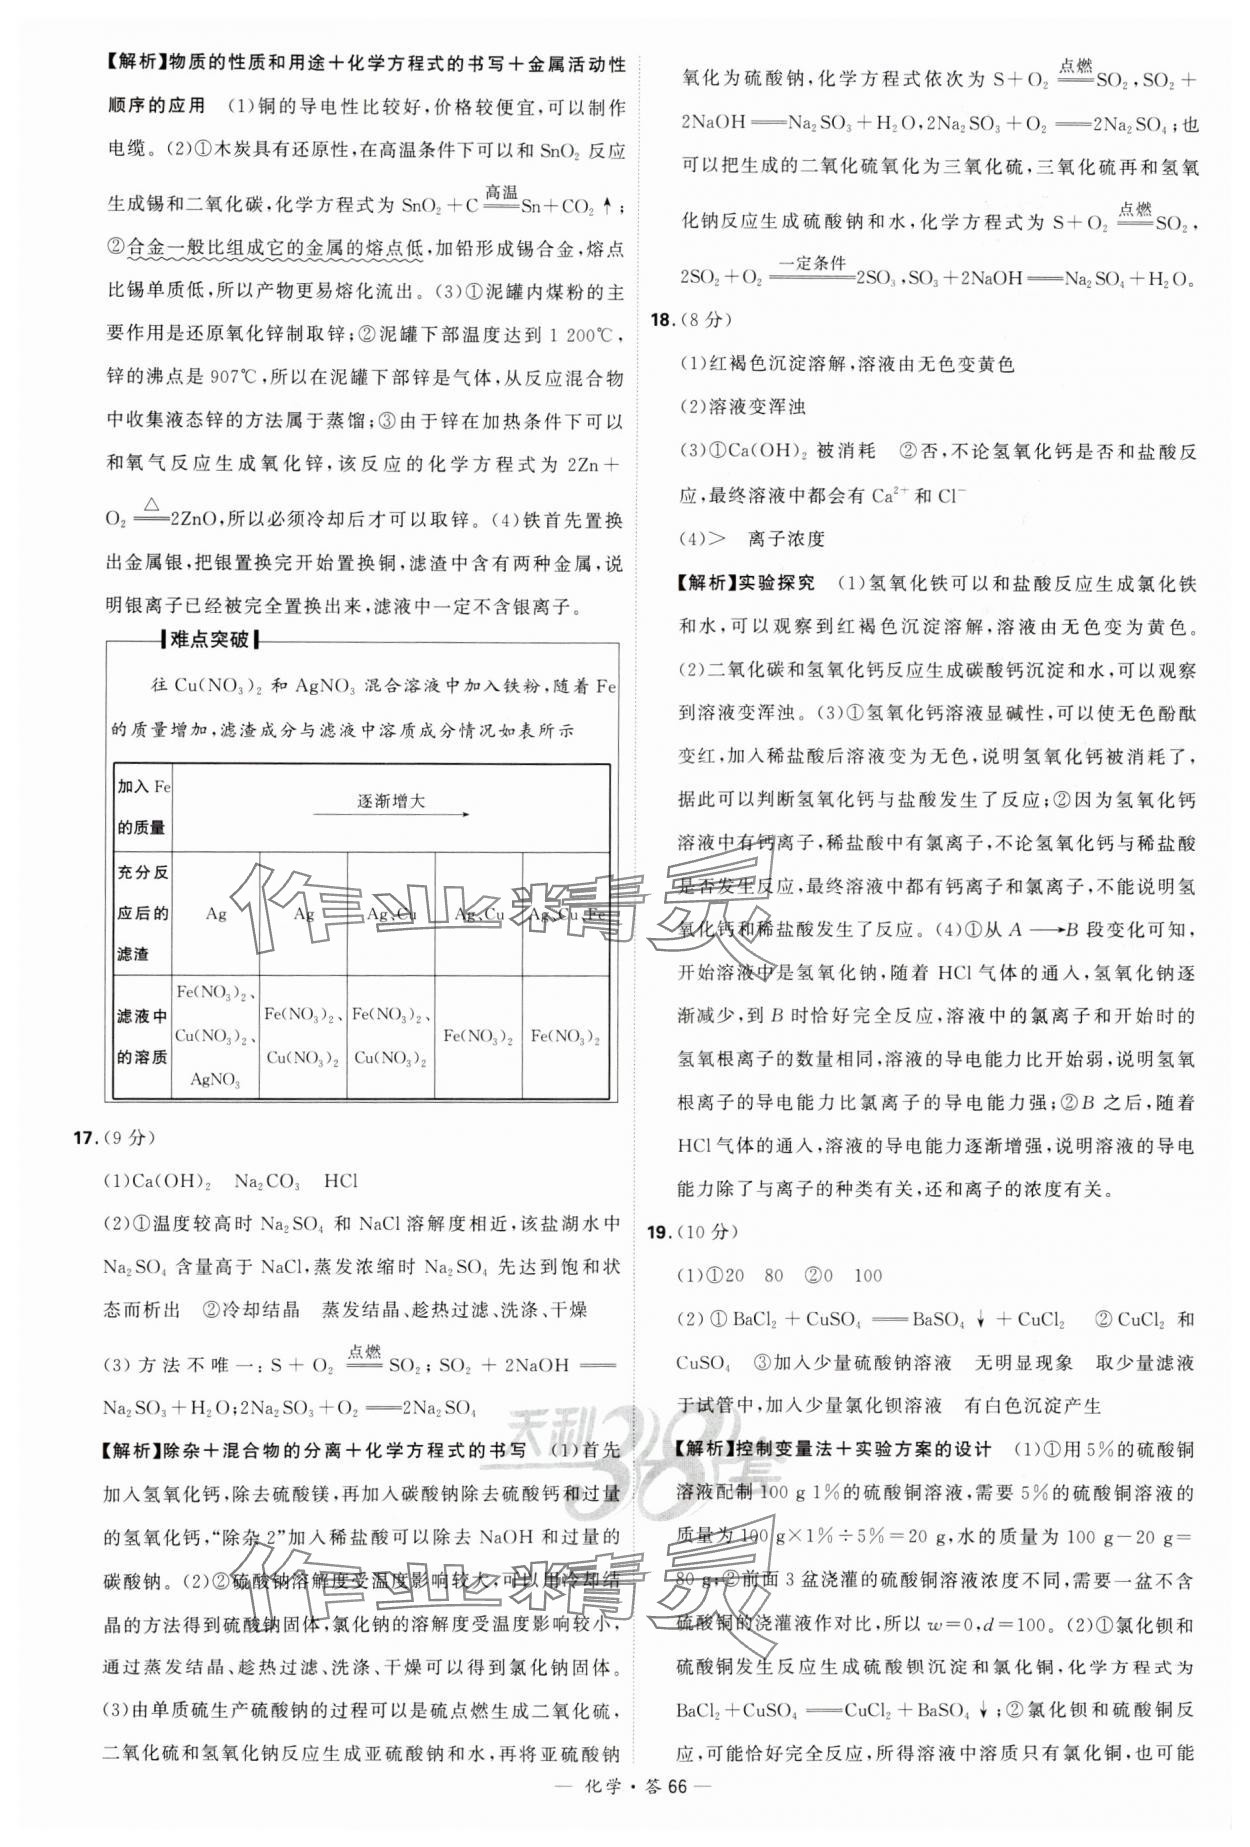 【解析】物质的性质和用途+化学方程式的书写+金属活动性
顺序的应用 (1)铜的导电性比较好,价格较便宜,可以制作
电缆。(2)①木炭具有还原性,在高温条件下可以和 SnO₂ 反应
生成锡和二氧化碳,化学方程式为 SnO₂+C 高温══ Sn+CO₂↑;
②合金一般比组成它的金属的熔点低,加铅形成锡合金,熔点
比锡单质低,所以产物更易熔化流出。(3)①泥罐内煤粉的主
要作用是还原氧化锌制取锌;②泥罐下部温度达到 1 200℃,
锌的沸点是 907℃,所以在泥罐下部锌是气体,从反应混合物
中收集液态锌的方法属于蒸馏;③由于锌在加热条件下可以
和氧气反应生成氧化锌,该反应的化学方程式为 2Zn+
O₂ △══ 2ZnO,所以必须冷却后才可以取锌。(4)铁首先置换
出金属银,把银置换完开始置换铜,滤渣中含有两种金属,说
明银离子已经被完全置换出来,滤液中一定不含银离子。
难点突破
往 Cu(NO₃)₂ 和 AgNO₃ 混合溶液中加入铁粉,随着 Fe
的质量增加,滤渣成分与滤液中溶质成分情况如表所示
加入 Fe 的质量 逐渐增大
充分反应后的滤渣 Ag Ag Ag、Cu Ag、Cu Ag、Cu、Fe
滤液中的溶质 Fe(NO₃)₂、Cu(NO₃)₂、AgNO₃ Fe(NO₃)₂、Cu(NO₃)₂ Fe(NO₃)₂、Cu(NO₃)₂ Fe(NO₃)₂ Fe(NO₃)₂
17.(9 分)
(1)Ca(OH)₂ Na₂CO₃ HCl
(2)①温度较高时 Na₂SO₄ 和 NaCl 溶解度相近,该盐湖水中
Na₂SO₄ 含量高于 NaCl,蒸发浓缩时 Na₂SO₄ 先达到饱和状
态而析出 ②冷却结晶 蒸发结晶、趁热过滤、洗涤、干燥
(3)方法不唯一:S+O₂ 点燃══ SO₂;SO₂+2NaOH══
Na₂SO₃+H₂O;2Na₂SO₃+O₂══2Na₂SO₄
【解析】除杂+混合物的分离+化学方程式的书写 (1)首先
加入氢氧化钙,除去硫酸镁,再加入碳酸钠除去硫酸钙和过量
的氢氧化钙,“除杂 2”加入稀盐酸可以除去 NaOH 和过量的
碳酸钠。(2)②硫酸钠溶解度受温度影响较大,可以用冷却结
晶的方法得到硫酸钠固体,氯化钠的溶解度受温度影响较小,
通过蒸发结晶、趁热过滤、洗涤、干燥可以得到氯化钠固体。
(3)由单质硫生产硫酸钠的过程可以是硫点燃生成二氧化硫,
二氧化硫和氢氧化钠反应生成亚硫酸钠和水,再将亚硫酸钠
氧化为硫酸钠,化学方程式依次为 S+O₂ 点燃══ SO₂,SO₂+
2NaOH══Na₂SO₃+H₂O,2Na₂SO₃+O₂══2Na₂SO₄;也
可以把生成的二氧化硫氧化为三氧化硫,三氧化硫再和氢氧
化钠反应生成硫酸钠和水,化学方程式为 S+O₂ 点燃══ SO₂,
2SO₂+O₂ 一定条件══ 2SO₃,SO₃+2NaOH══Na₂SO₄+H₂O。
18.(8 分)
(1)红褐色沉淀溶解,溶液由无色变黄色
(2)溶液变浑浊
(3)①Ca(OH)₂ 被消耗 ②否,不论氢氧化钙是否和盐酸反
应,最终溶液中都会有 Ca²⁺ 和 Cl⁻
(4)> 离子浓度
【解析】实验探究 (1)氢氧化铁可以和盐酸反应生成氯化铁
和水,可以观察到红褐色沉淀溶解,溶液由无色变为黄色。
(2)二氧化碳和氢氧化钙反应生成碳酸钙沉淀和水,可以观察
到溶液变浑浊。(3)①氢氧化钙溶液显碱性,可以使无色酚酞
变红,加入稀盐酸后溶液变为无色,说明氢氧化钙被消耗了,
据此可以判断氢氧化钙与盐酸发生了反应;②因为氢氧化钙
溶液中有钙离子,稀盐酸中有氯离子,不论氢氧化钙与稀盐酸
是否发生反应,最终溶液中都有钙离子和氯离子,不能说明氢
氧化钙和稀盐酸发生了反应。(4)①从 A→B 段变化可知,
开始溶液中是氢氧化钠,随着 HCl 气体的通入,氢氧化钠逐
渐减少,到 B 时恰好完全反应,溶液中的氯离子和开始时的
氢氧根离子的数量相同,溶液的导电能力比开始弱,说明氢氧
根离子的导电能力比氯离子的导电能力强;②B 之后,随着
HCl 气体的通入,溶液的导电能力逐渐增强,说明溶液的导电
能力除了与离子的种类有关,还和离子的浓度有关。
19.(10 分)
(1)①20 80 ②0 100
(2)①BaCl₂+CuSO₄══BaSO₄↓+CuCl₂ ②CuCl₂ 和
CuSO₄ ③加入少量硫酸钠溶液 无明显现象 取少量滤液
于试管中,加入少量氯化钡溶液 有白色沉淀产生
【解析】控制变量法+实验方案的设计 (1)①用 5%的硫酸铜
溶液配制 100 g 1%的硫酸铜溶液,需要 5%的硫酸铜溶液的
质量为 100 g×1%÷5%=20 g,水的质量为 100 g-20 g=
80 g;②前面 3 盆浇灌的硫酸铜溶液浓度不同,需要一盆不含
硫酸铜的浇灌液作对比,所以 w=0,d=100。(2)①氯化钡和
硫酸铜发生反应生成硫酸钡沉淀和氯化铜,化学方程式为
BaCl₂+CuSO₄══CuCl₂+BaSO₄↓;②氯化钡和硫酸铜反
应,可能恰好完全反应,所得溶液中溶质只有氯化铜,也可能
— 化学·答 66 —
作业精灵
天利38套
作业精灵